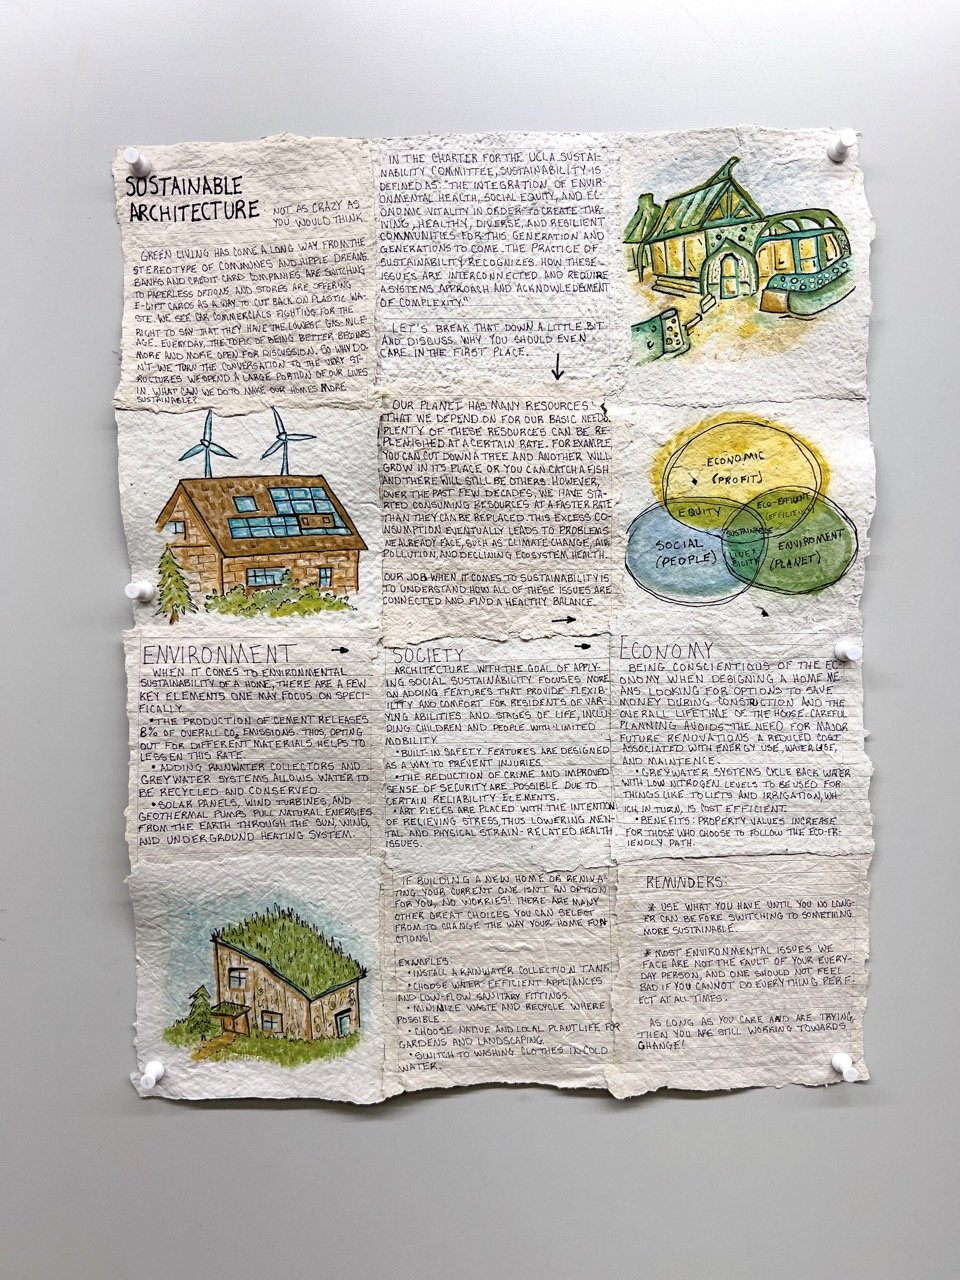 SUSTAINABLE
ARCHITECTURE
NOT AS CRAZY AS
YOU WOULD THINK.
GREEN LIVING HAS COME A LONG WAY FROM THE
STEREOTYPE OF COMMUNES AND HIPPIE DREAMS
BANKS AND CREDIT CARD COMPANIES ARE SWITCHING
TO PAPERLESS OPTIONS, AND STORES ARE OFFERING
E-GIFT CARDS AS A WAY TO CUT BACK ON PLASTIC WA-
STE. WE SEE CAR COMMERCIALS FIGHTING FOR THE
RIGHT TO SAY THAT THEY HAVE THE LOWEST GAS-MILE
AGE. EVERYDAY, THE TOPIC OF BEING BETTER BECOMES
MORE AND MORE OPEN FOR DISCUSSION. SO WHY DO-
N'T WE TURN THE CONVERSATION TO THE VERY ST-
RUCTURES WE SPEND A LARGE PORTION OF OUR LIVES
IN. WHAT CAN WE DO TO MAKE OUR HOMES MORE
SUSTAINABLE?
IN THE CHARTER FOR THE UCLA SUSTAI-
NABILITY COMMITTEE, SUSTAINABILITY IS
DEFINED AS: "THE INTEGRATION OF ENVIR-
ONMENTAL HEALTH, SOCIAL EQUITY, AND EC-
ONOMIC VITALITY IN ORDER TO CREATE THR-
IVING, HEALTHY, DIVERSE, AND RESILIENT
COMMUNITIES FOR THIS GENERATION AND
GENERATIONS TO COME. THE PRACTICE OF
SUSTAINABILITY RECOGNIZES HOW THESE
ISSUES ARE INTERCONNECTED AND REQUIRE
A SYSTEMS APPROACH AND ACKNOWLEDGMENT
OF COMPLEXITY."
LET'S BREAK THAT DOWN A LITTLE BIT
AND DISCUSS WHY YOU SHOULD EVEN
CARE IN THE FIRST PLACE.
OUR PLANET HAS MANY RESOURCES
THAT WE DEPEND ON FOR OUR BASIC NEEDS.
PLENTY OF THESE RESOURCES CAN BE RE-
PLENISHED AT A CERTAIN RATE. FOR EXAMPLE,
YOU CAN CUT DOWN A TREE AND ANOTHER WILL
GROW IN ITS PLACE OR YOU CAN CATCH A FISH
AND THERE WILL STILL BE OTHERS. HOWEVER,
OVER THE PAST FEW DECADES, WE HAVE STA-
RTED CONSUMING RESOURCES AT A FASTER RATE
THAN THEY CAN BE REPLACED. THIS EXCESS CO-
NSUMPTION EVENTUALLY LEADS TO PROBLEMS
WE ALREADY FACE, SUCH AS CLIMATE CHANGE, AIR
POLLUTION, AND DECLINING ECOSYSTEM HEALTH.
OUR JOB WHEN IT COMES TO SUSTAINABILITY IS
TO UNDERSTAND HOW ALL OF THESE ISSUES ARE
CONNECTED AND FIND A HEALTHY BALANCE.
ECONOMIC
(PROFIT)
EQUITY
ECO-EFFICIENT
EFFICIENCY
SUSTAINABLE
SOCIAL
(PEOPLE)
LIVEA
BILITY
ENVIROMENT
(PLANET)
ENVIRONMENT
WHEN IT COMES TO ENVIRONMENTAL
SUSTAINABILITY OF A HOME, THERE ARE A FEW
KEY ELEMENTS ONE MAY FOCUS ON SPECI-
FICALLY.
•THE PRODUCTION OF CEMENT RELEASES
8% OF OVERALL CO2 EMISSIONS. THUS, OPTING
OUT FOR DIFFERENT MATERIALS HELPS TO
LESSEN THIS RATE.
•ADDING RAINWATER COLLECTORS AND
GREYWATER SYSTEMS ALLOWS WATER TO
BE RECYCLED AND CONSERVED.
•SOLAR PANELS, WIND TURBINES, AND
GEOTHERMAL PUMPS PULL NATURAL ENERGIES
FROM THE EARTH THROUGH THE SUN, WIND,
AND UNDERGROUND HEATING SYSTEM.
SOCIETY
ARCHITECTURE WITH THE GOAL OF APPLY-
ING SOCIAL SUSTAINABILITY FOCUSES MORE
ON ADDING FEATURES THAT PROVIDE FLEXIB-
ILITY AND COMFORT FOR RESIDENTS OF VAR-
YING ABILITIES AND STAGES OF LIFE, INCLU-
DING CHILDREN AND PEOPLE WITH LIMITED
MOBILITY.
•BUILT-IN SAFETY FEATURES ARE DESIGNED
AS A WAY TO PREVENT INJURIES.
•THE REDUCTION OF CRIME AND IMPROVED
SENSE OF SECURITY ARE POSSIBLE DUE TO
CERTAIN RELIABILITY ELEMENTS.
•ART PIECES ARE PLACED WITH THE INTENTION
OF RELIEVING STRESS, THUS LOWERING MEN-
TAL AND PHYSICAL STRAIN-RELATED HEALTH
ISSUES.
ECONOMY
BEING CONSCIENTIOUS OF THE EC-
ONOMY WHEN DESIGNING A HOME ME-
ANS LOOKING FOR OPTIONS TO SAVE
MONEY DURING CONSTRUCTION AND THE
OVERALL LIFETIME OF THE HOUSE. CAREFUL
PLANNING AVOIDS THE NEED FOR MAJOR
FUTURE RENOVATIONS. A REDUCED COST
ASSOCIATED WITH ENERGY USE, WATER USE,
AND MAINTENCE.
•GREYWATER SYSTEMS CYCLE BACK WATER
WITH LOW NITROGEN LEVELS TO BE USED FOR
THINGS LIKE TOILETS AND IRRIGATION, WH-
ICH IN TURN, IS COST EFFICIENT.
•BENEFITS: PROPERTY VALUES INCREASE
FOR THOSE WHO CHOOSE TO FOLLOW THE ECO-FR-
IENDLY PATH.
IF BUILDING A NEW HOME OR RENIVA-
TING YOUR CURRENT ONE ISN'T AN OPTION
FOR YOU, NO WORRIES! THERE ARE MANY
OTHER GREAT CHOICES YOU CAN SELECT
FROM TO CHANGE THE WAY YOUR HOME FUN
CTIONS!
EXAMPLES:
•INSTALL A RAINWATER COLLECTION TANK.
•CHOOSE WATER EFFICIENT APPLIANCES
AND LOW-FLOW SANITARY FITTINGS.
•MINIMIZE WASTE AND RECYCLE WHERE
POSSIBLE.
•CHOOSE NATIVE AND LOCAL PLANTLIFE FOR
GARDENS AND LANDSCAPING.
•SWITCH TO WASHING CLOTHES IN COLD
WATER.
REMINDERS:
* USE WHAT YOU HAVE UNTIL YOU NO LONG-
ER CAN BEFORE SWITCHING TO SOMETHING
MORE SUSTAINABLE.
*MOST ENVIRONMENTAL ISSUES WE
FACE ARE NOT THE FAULT OF YOUR EVERY-
DAY PERSON, AND ONE SHOULD NOT FEEL
BAD IF YOU CANNOT DO EVERYTHING PERF-
ECT AT ALL TIMES.
AS LONG AS YOU CARE AND ARE TRYING,
THEN YOU ARE STILL WORKING TOWARDS
CHANGE!